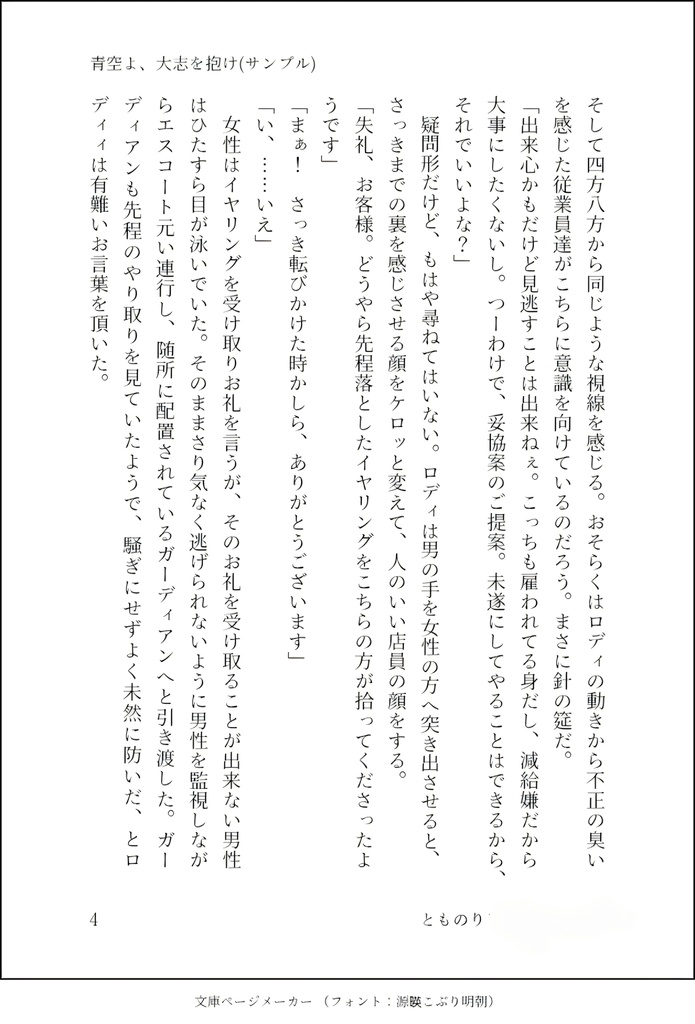 青空よ、大志を抱け(サンプル)
そして四方八方から同じような視線を感じる。おそらくはロディの動きから不正の臭い
を感じた従業員達がこちらに意識を向けているのだろう。まさに針の筵だ。
「出来心かもだけど見逃すことは出来ねぇ。こっちも雇われてる身だし、減給嫌だから
大事にしたくないし。つーわけで、妥協案のご提案。未遂にしてやることはできるから、
それでいいよな？」
　疑問形だけど、もはや尋ねてはいない。ロディは男の手を女性の方へ突き出させると、
さっきまでの裏を感じさせる顔をケロッと変えて、人のいい店員の顔をする。
「失礼、お客様。どうやら先程落としたイヤリングをこちらの方が拾ってくださったよ
うです」
「まぁ！　さっき転びかけた時かしら、ありがとうございます」
「い、……いえ」
　女性はイヤリングを受け取りお礼を言うが、そのお礼を受け取ることが出来ない男性
はひたすら目が泳いでいた。そのままさり気なく逃げられないように男性を監視しなが
らエスコート元い連行し、随所に配置されているガーディアンへと引き渡した。ガー
ディアンも先程のやり取りを見ていたようで、騒ぎにせずよく未然に防いだ、とロ
ディは有難いお言葉を頂いた。
4
とものり
文庫ページメーカー（フォント：源暎こぶり明朝）